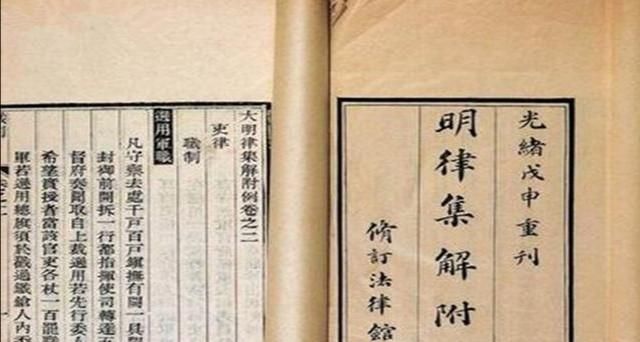 光緒戊申重刊
明律集解附
脩訂法律館
大明律集解附例卷之二
吏律
職制
選用軍職
凡守禦去處千戶百戶鎮撫有闕一具
封御前開拆一行都指揮使司轉達五
督府奏聞取自上裁選用若先行委人
希望實授者當該官吏各杖一百罷職
軍若選用總旗須於戳過鐵鎗人內委